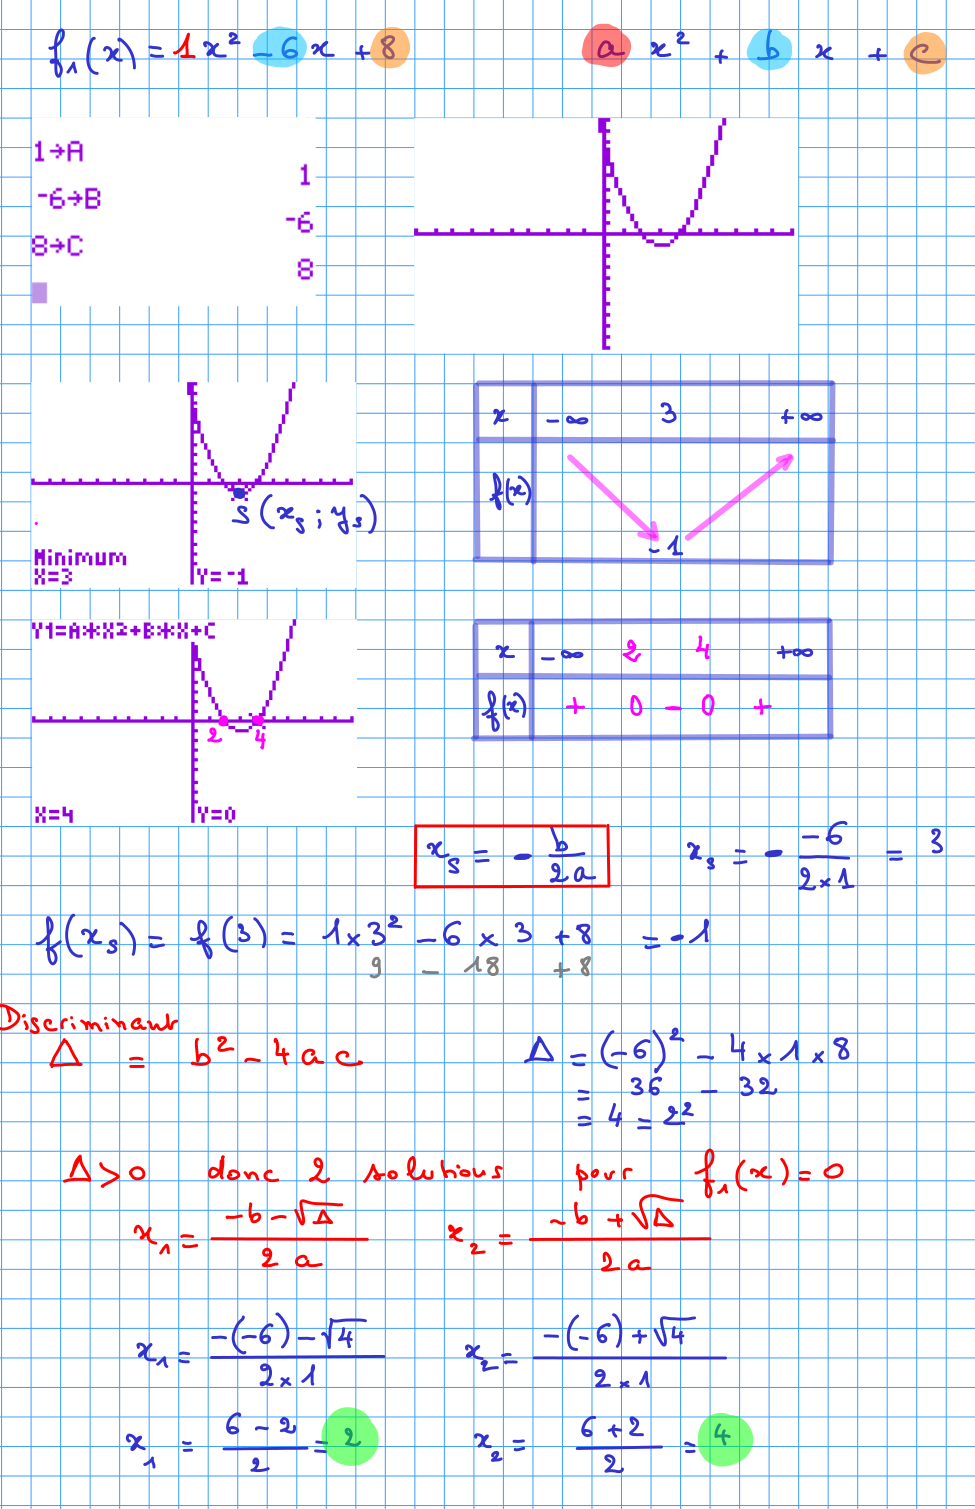 f₁(x) = 1 x² - 6 x + 8
a x² + b x + c
1→A
1
-6→B
-6
8→C
8
S (x_s ; y_s)
Minimum
X=3 Y=-1
x -∞ 3 +∞
f(x)
-1
Y1=A*X2+B*X+C
2 4
X=4 Y=0
x -∞ 2 4 +∞
f(x) + 0 - 0 +
x_s = - b/2a
x_s = - -6/2×1 = 3
f(x_s) = f(3) = 1×3² - 6 × 3 + 8 = -1
9 - 18 + 8
Discriminant
Δ = b² - 4 a c
Δ = (-6)² - 4×1×8
= 36 - 32
= 4 = 2²
Δ > 0 donc 2 solutions pour f₁(x) = 0
x₁ = -b-√Δ/2a
x₂ = -b+√Δ/2a
x₁ = -(-6)-√4/2×1
x₂ = -(-6)+√4/2×1
x₁ = 6-2/2 = 2
x₂ = 6+2/2 = 4